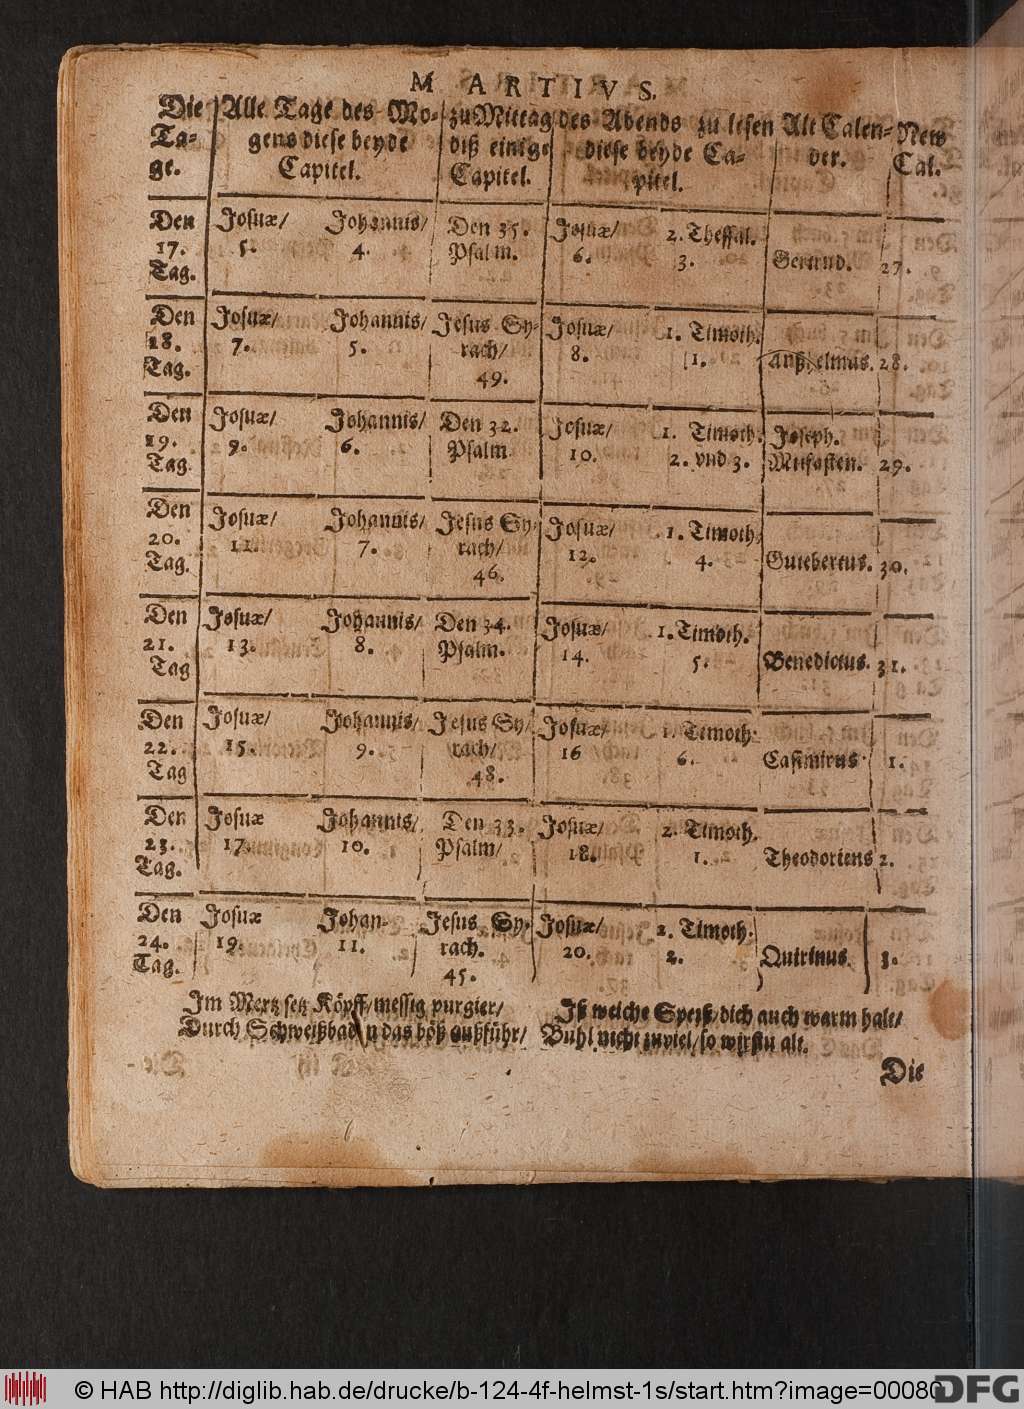 MARTIVS.
Die Ta- ge. Alle Tage des Mo- gens diese beyde Capitel. zu Mittag diß einige Capitel. des Abends zu lesen diese beyde Ca- pitel. Alt Calen- der. New Cal.
Den 17. Tag. Josuæ/ 5. Johannis/ 4. Den 35. Psalm. Josuæ/ 6. 2. Thessal. 3. Gertrud. 27.
Den 18. Tag. Josuæ/ 7. Johannis/ 5. Jesus Sy- rach/ 49. Josuæ/ 8. 1. Timoth. 1. Anßhelmus. 28.
Den 19. Tag. Josuæ/ 9. Johannis/ 6. Den 32. Psalm Josuæ/ 10. 1. Timoth. 2. vnd 3. Joseph. Mitfasten. 29.
Den 20. Tag. Josuæ/ 11. Johannis/ 7. Jesus Sy- rach/ 46. Josuæ/ 12. 1. Timoth. 4. Gutebertus. 30.
Den 21. Tag Josuæ/ 13. Johannis/ 8. Den 34. Psalm. Josuæ/ 14. 1. Timoth. 5. Benedictus. 31.
Den 22. Tag Josuæ/ 15. Johannis/ 9. Jesus Sy/ rach/ 48. Josuæ/ 16 1. Timoth. 6. Casimirus 1.
Den 23. Tag. Josuæ 17. Johannis/ 10. Den 33. Psalm/ Josuæ/ 18. 2. Timoth. 1. Theodoricus 2.
Den 24. Tag. Josuæ 19. Johan- 11. Jesus Sy- rach. 45. Josuæ/ 20. 2. Timoth. 2. Quirinus. 3.
Im Mertz setz Köpff/ messig purgier/
Durch Schweißbad n das böß außführ/
Iß weiche Speiß/ dich auch warm halt/
Buhl nicht zuviel/ so wirstu alt.
Die
© HAB http://diglib.hab.de/drucke/b-124-4f-helmst-1s/start.htm?image=00080
DFG